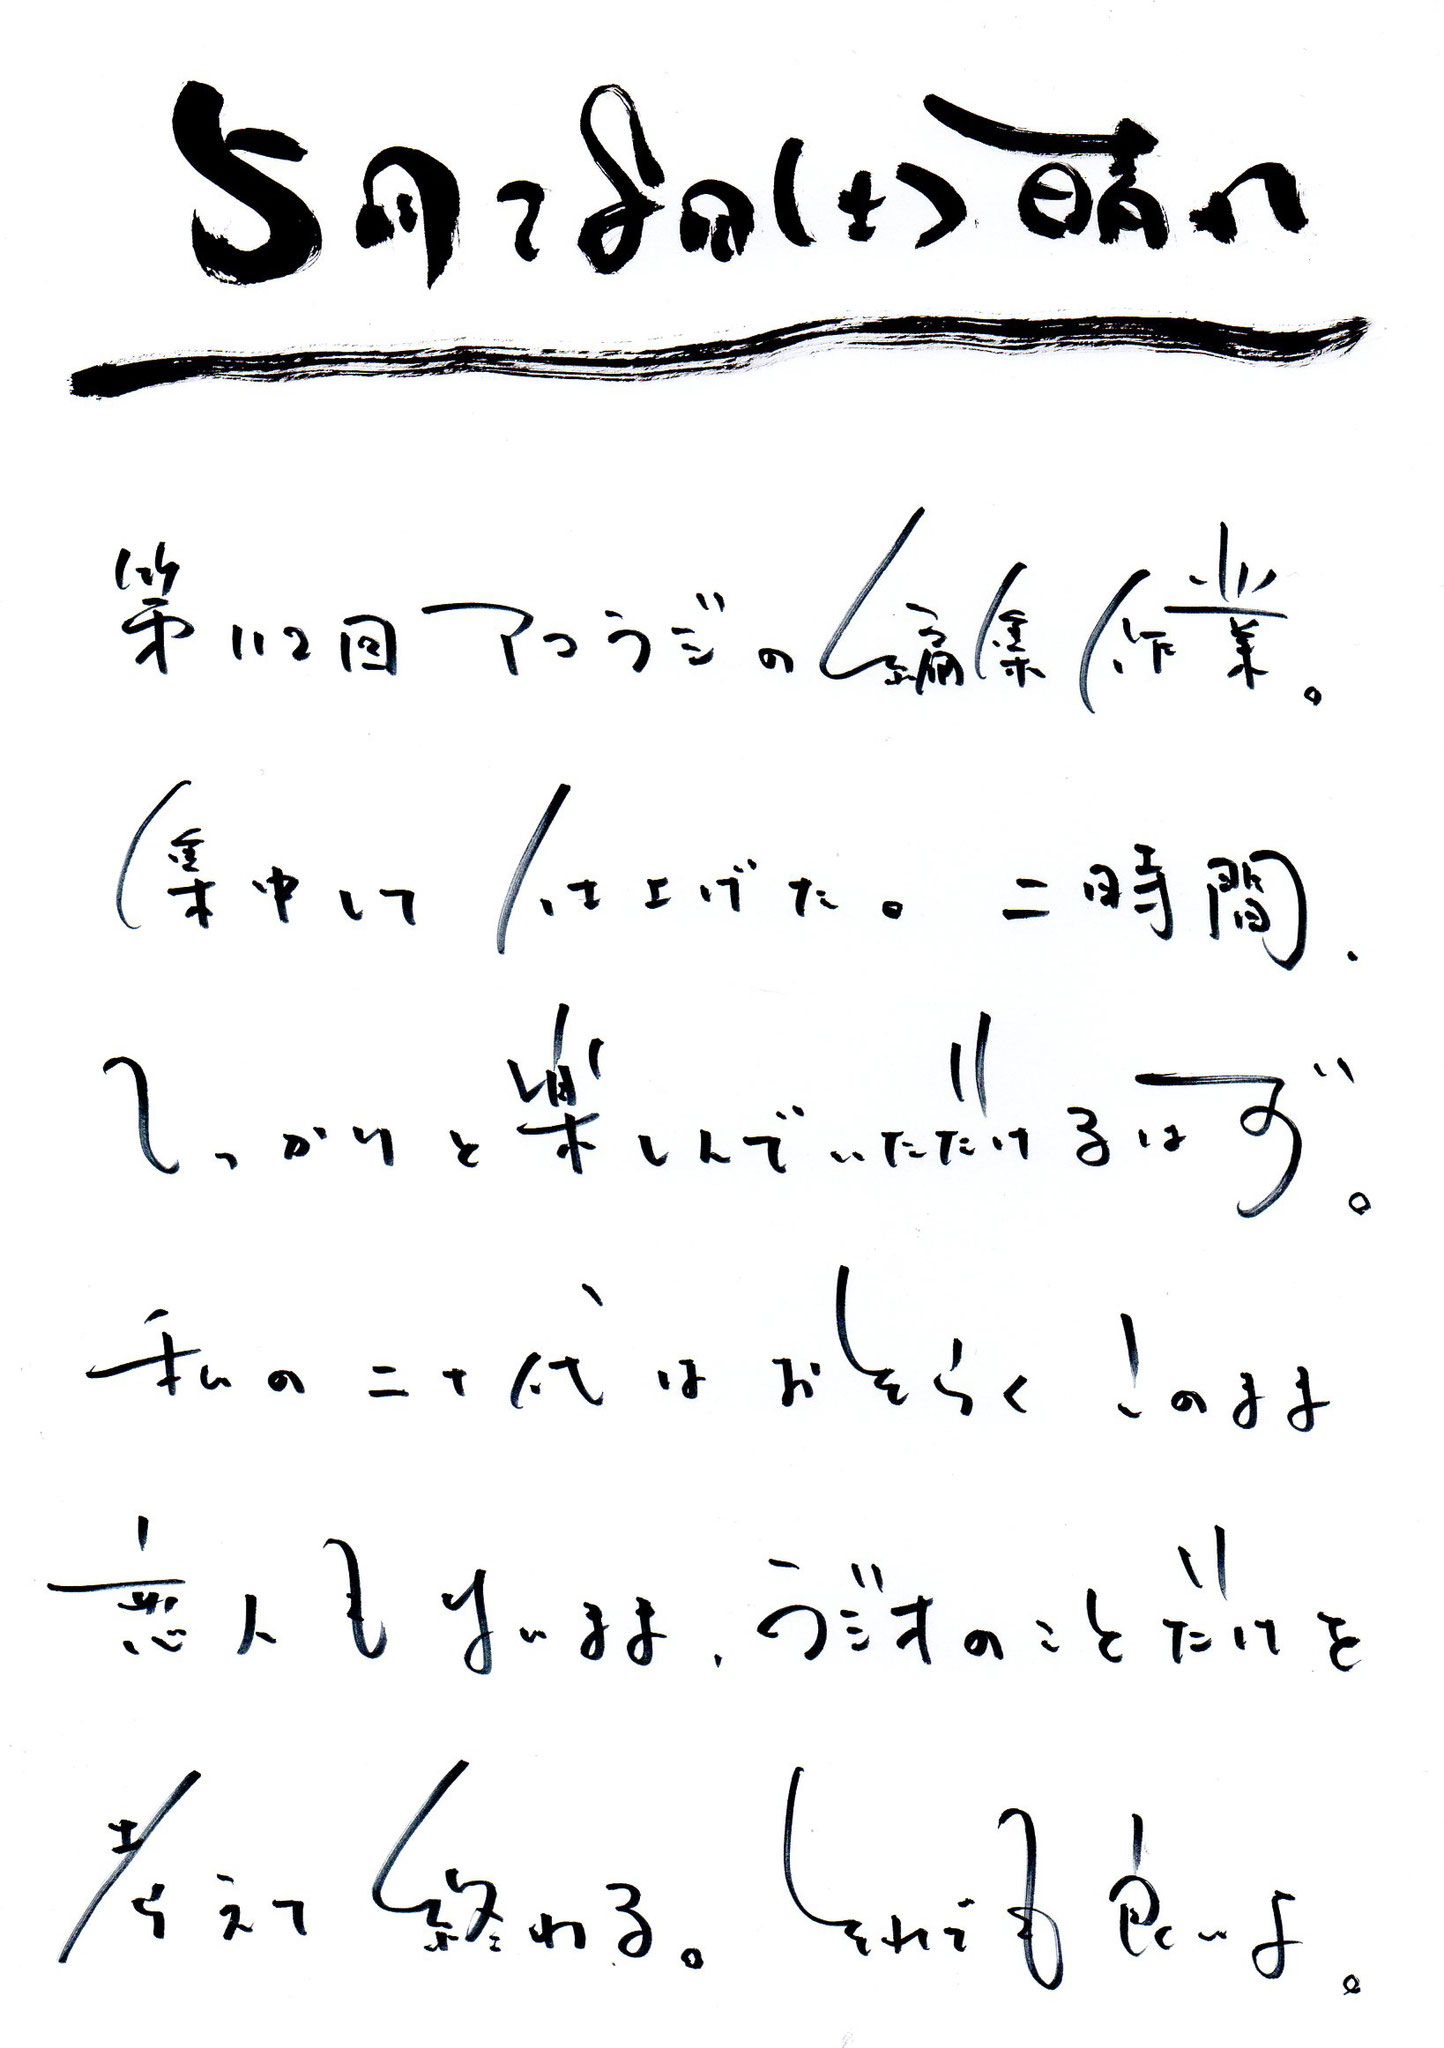 5月28日(土)晴れ
第112回アコラジの編集作業。
集中して仕上げた。二時間、
しっかりと楽しんでいただけるはず。
私の二十代はおそらくこのまま
恋人もないまま、ラジオのことだけを
考えて終わる。それでも良いよ。